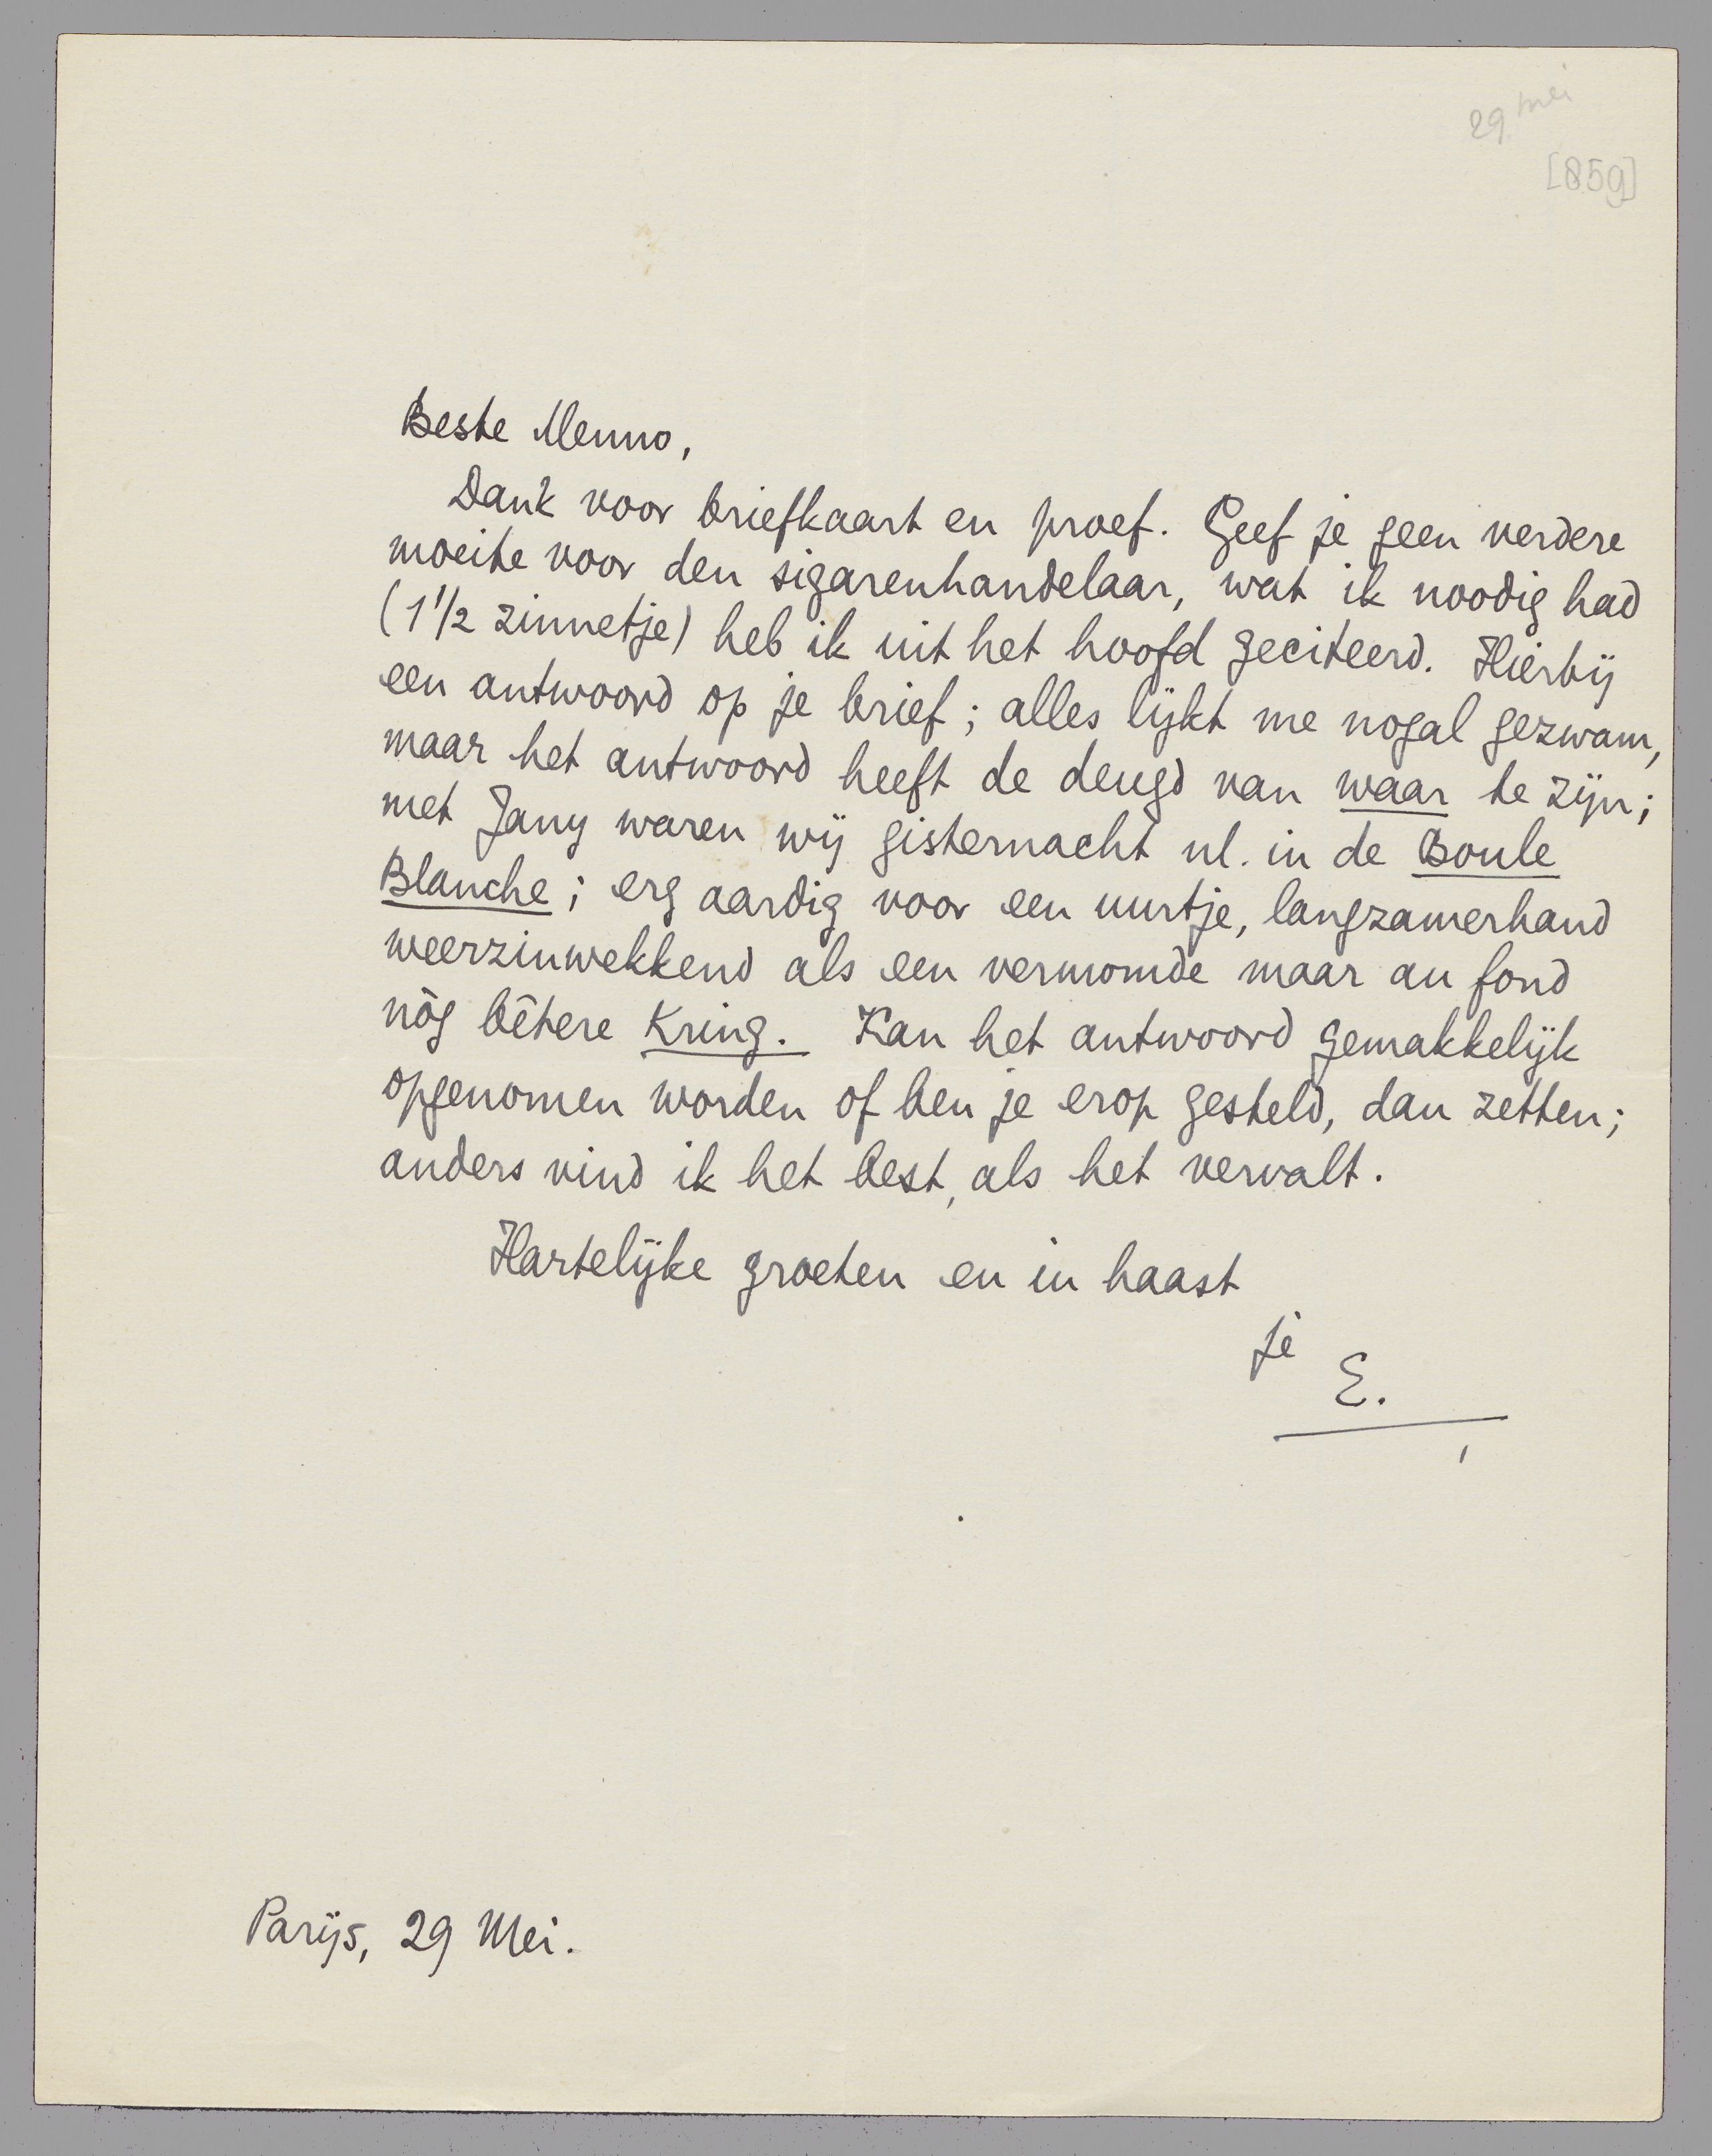 29 mei
[859]
Beste Menno,
Dank voor briefkaart en proef. Geef je geen verdere
moeite voor den sigarenhandelaar, wat ik noodig had
(1 1/2 zinnetje) heb ik uit het hoofd geciteerd. Hierbij
een antwoord op je brief; alles lijkt me nogal gezwam,
maar het antwoord heeft de deugd van waar te zijn;
met Jany waren wij gisternacht nl. in de Boule
Blanche; erg aardig voor een uurtje, langzamerhand
weerzinwekkend als een vermomde maar au fond
nòg bêtere Kring. Kan het antwoord gemakkelijk
opgenomen worden of ben je erop gesteld, dan zetten;
anders vind ik het best, als het vervalt.
Hartelijke groeten en in haast
je
E.
Parijs, 29 Mei.